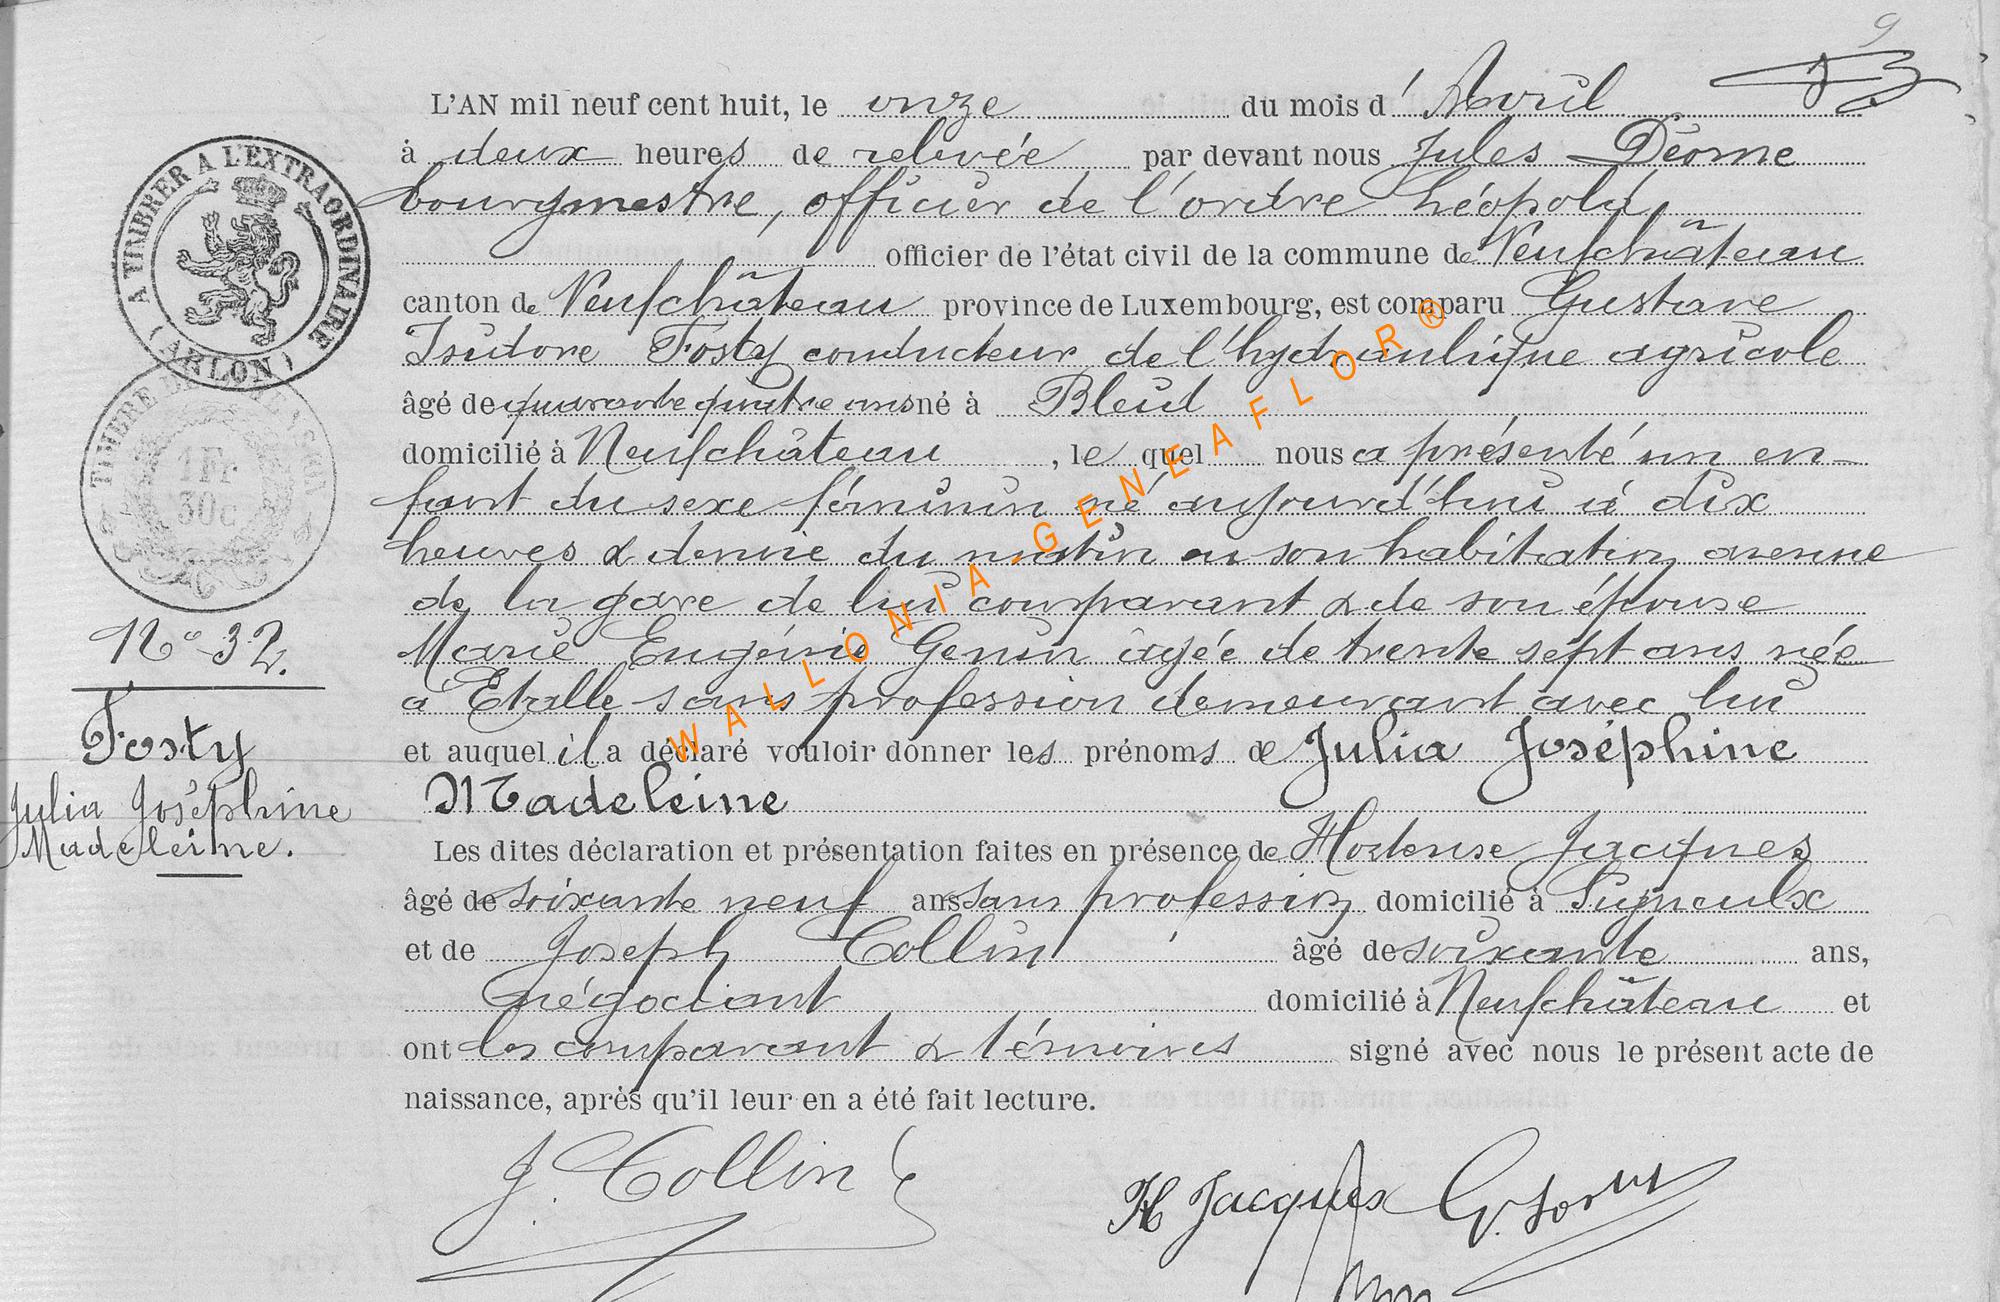 9
L'AN mil neuf cent huit, le onze du mois d'Avril
à deux heures de relevée par devant nous Jules
bourgmestre, officier de l'ordre Léopold,
officier de l'état civil de la commune de Neufchâteau
canton de Neufchâteau province de Luxembourg, est comparu Gustave
Isidore Fosty conducteur de l'hydraulique agricole
âgé de quarante quatre ans né à Bleid
domicilié à Neufchâteau, le quel nous a présenté un en-
fant du sexe féminin né aujourd'hui à dix
heures & demie du matin en son habitation avenue
de la gare de lui comparant & de son épouse
Marie Eugénie Genin agée de trente sept ans née
a Etalle sans profession demeurant avec lui
et auquel il a déclaré vouloir donner les prénoms de Julia Joséphine
Madeleine
Les dites déclaration et présentation faites en présence de Hortense Jacques
âgé de soixante neuf ans sans profession domicilié à
et de Joseph Collin âgé de soixante ans,
négociant domicilié à Neufchâteau et
ont les comparant & témoins signé avec nous le présent acte de
naissance, après qu'il leur en a été fait lecture.
J. Collin
H Jacques
A TIMBRER A L'EXTRAORDINAIRE
(ARLON)
TIMBRE DE DIMENSION
1Fr
30c
No 32.
Fosty
Julia Joséphine
Madeleine.
WALLONIA-GENEAFLOR®